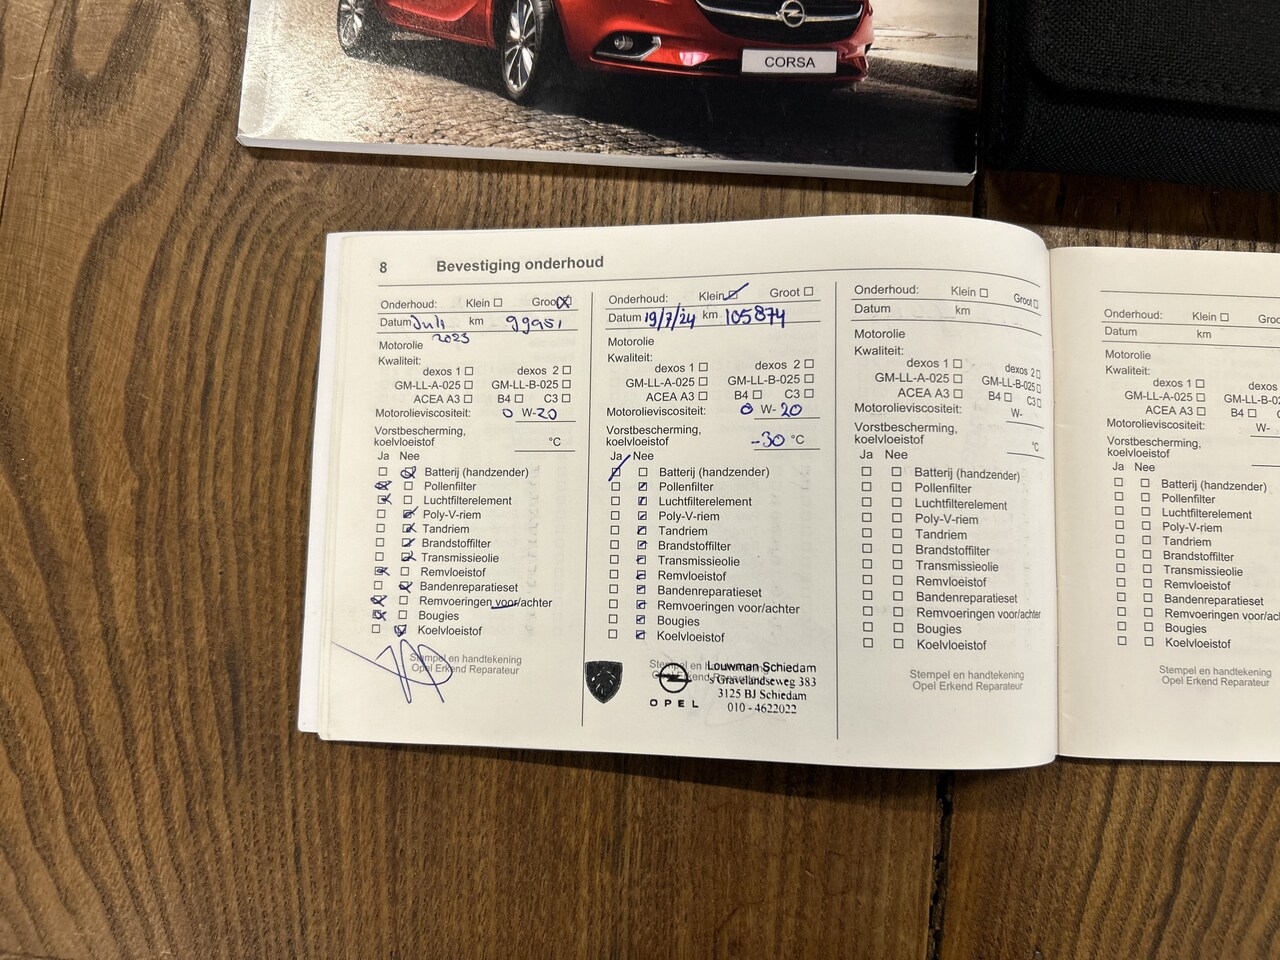 CORSA
8 Bevestiging onderhoud
Onderhoud: Klein ☐ Groot ☒
Datum Juli 2023 km 99951
Motorolie
Kwaliteit:
dexos 1 ☐ dexos 2 ☐
GM-LL-A-025 ☐ GM-LL-B-025 ☐
ACEA A3 ☐ B4 ☐ C3 ☐
Motorolieviscositeit: 0 W-20
Vorstbescherming,
koelvloeistof °C
Ja Nee
☐ ☒ Batterij (handzender)
☒ ☐ Pollenfilter
☒ ☐ Luchtfilterelement
☐ ☒ Poly-V-riem
☐ ☒ Tandriem
☐ ☒ Brandstoffilter
☐ ☒ Transmissieolie
☒ ☐ Remvloeistof
☐ ☒ Bandenreparatieset
☒ ☐ Remvoeringen voor/achter
☒ ☐ Bougies
☐ ☒ Koelvloeistof
Stempel en handtekening
Opel Erkend Reparateur
Onderhoud: Klein ☑ Groot ☐
Datum 19/7/24 km 105874
Motorolie
Kwaliteit:
dexos 1 ☐ dexos 2 ☐
GM-LL-A-025 ☐ GM-LL-B-025 ☐
ACEA A3 ☐ B4 ☐ C3 ☐
Motorolieviscositeit: 0 W-20
Vorstbescherming,
koelvloeistof -30 °C
Ja Nee
☑ ☐ Batterij (handzender)
☐ ☑ Pollenfilter
☐ ☑ Luchtfilterelement
☐ ☑ Poly-V-riem
☐ ☑ Tandriem
☐ ☑ Brandstoffilter
☐ ☑ Transmissieolie
☐ ☑ Remvloeistof
☐ ☑ Bandenreparatieset
☐ ☑ Remvoeringen voor/achter
☐ ☑ Bougies
☐ ☑ Koelvloeistof
Stempel en handtekening
Opel Erkend Reparateur
OPEL
Louwman Schiedam
's Gravelandseweg 383
3125 BJ Schiedam
010 - 4622022
Onderhoud: Klein ☐ Groot ☐
Datum km
Motorolie
Kwaliteit:
dexos 1 ☐ dexos 2 ☐
GM-LL-A-025 ☐ GM-LL-B-025 ☐
ACEA A3 ☐ B4 ☐ C3 ☐
Motorolieviscositeit: W-
Vorstbescherming,
koelvloeistof °C
Ja Nee
☐ ☐ Batterij (handzender)
☐ ☐ Pollenfilter
☐ ☐ Luchtfilterelement
☐ ☐ Poly-V-riem
☐ ☐ Tandriem
☐ ☐ Brandstoffilter
☐ ☐ Transmissieolie
☐ ☐ Remvloeistof
☐ ☐ Bandenreparatieset
☐ ☐ Remvoeringen voor/achter
☐ ☐ Bougies
☐ ☐ Koelvloeistof
Stempel en handtekening
Opel Erkend Reparateur
Onderhoud: Klein ☐ Groo
Datum km
Motorolie
Kwaliteit:
dexos 1 ☐ dexos
GM-LL-A-025 ☐ GM-LL-B-02
ACEA A3 ☐ B4 ☐ C
Motorolieviscositeit: W-
Vorstbescherming,
koelvloeistof °C
Ja Nee
☐ ☐ Batterij (handzender)
☐ ☐ Pollenfilter
☐ ☐ Luchtfilterelement
☐ ☐ Poly-V-riem
☐ ☐ Tandriem
☐ ☐ Brandstoffilter
☐ ☐ Transmissieolie
☐ ☐ Remvloeistof
☐ ☐ Bandenreparatieset
☐ ☐ Remvoeringen voor/acl
☐ ☐ Bougies
☐ ☐ Koelvloeistof
Stempel en handtekening
Opel Erkend Reparateur